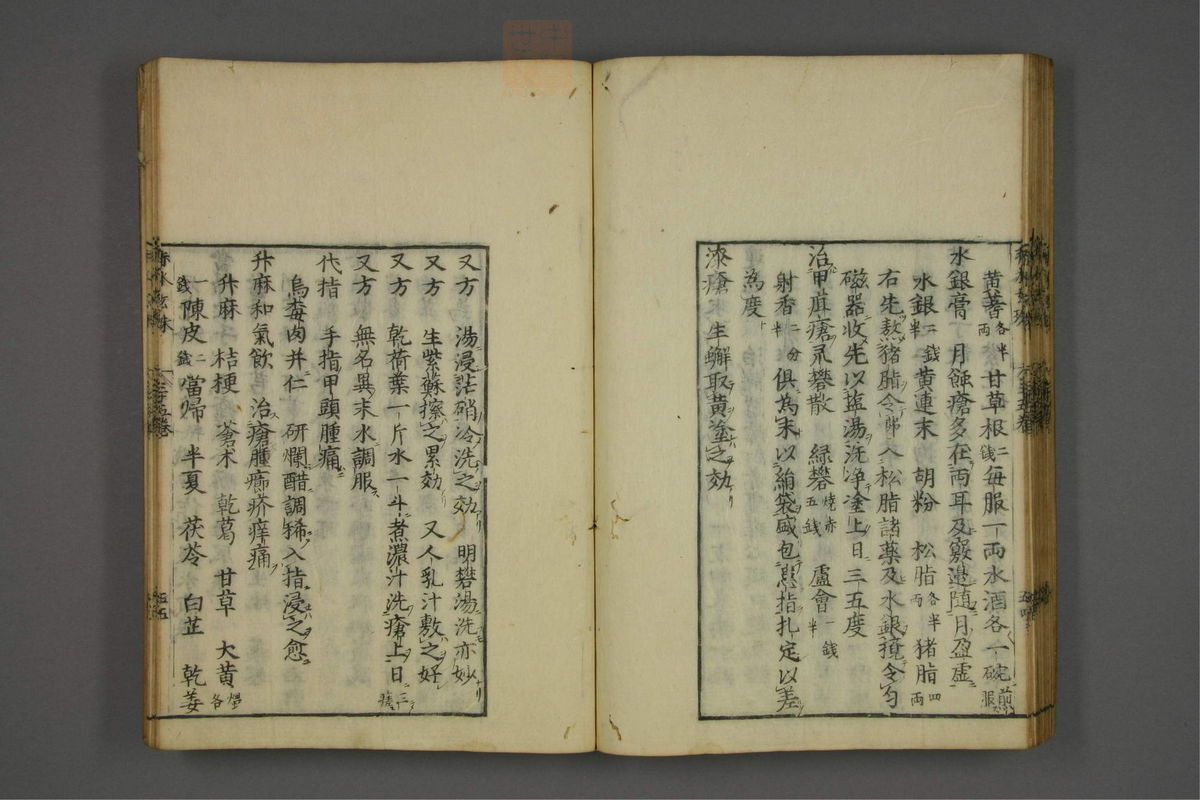 黄蓍各半両甘草根二銭每服一両水酒各一碗煎服
水銀膏 月蝕瘡多在両耳及竅邉随月盈虚
水銀二銭半黄連末 胡粉 松脂各半両 猪脂四両
右先熬猪脂令沸入松脂諸薬及水銀攪令匀
磁器收先以塩湯洗浄塗上日三五度
治甲疽瘡 礬散 緑礬焼赤五銭 盧會一銭半
射香二分半 俱為末以絹袋盛包患指扎定以差
為度
漆瘡 生蠏取黄塗之効
又方 湯浸芒硝冷洗之効 明礬湯洗亦妙
又方 生紫蘓擦之累効 又人乳汁敷之好
又方 乾荷葉一斤水一斗煮濃汁洗瘡上日二三
又方 無名異末水調服
代指 手指甲頭腫痛
烏梅肉并仁 研爛醋調稀入指浸之愈
升麻和氣飲 治瘡腫癤疥痒痛
升麻 桔梗 蒼术 乾葛 甘草 大黄煨各
一銭陳皮二銭當歸 半夏 茯苓 白芷 乾姜